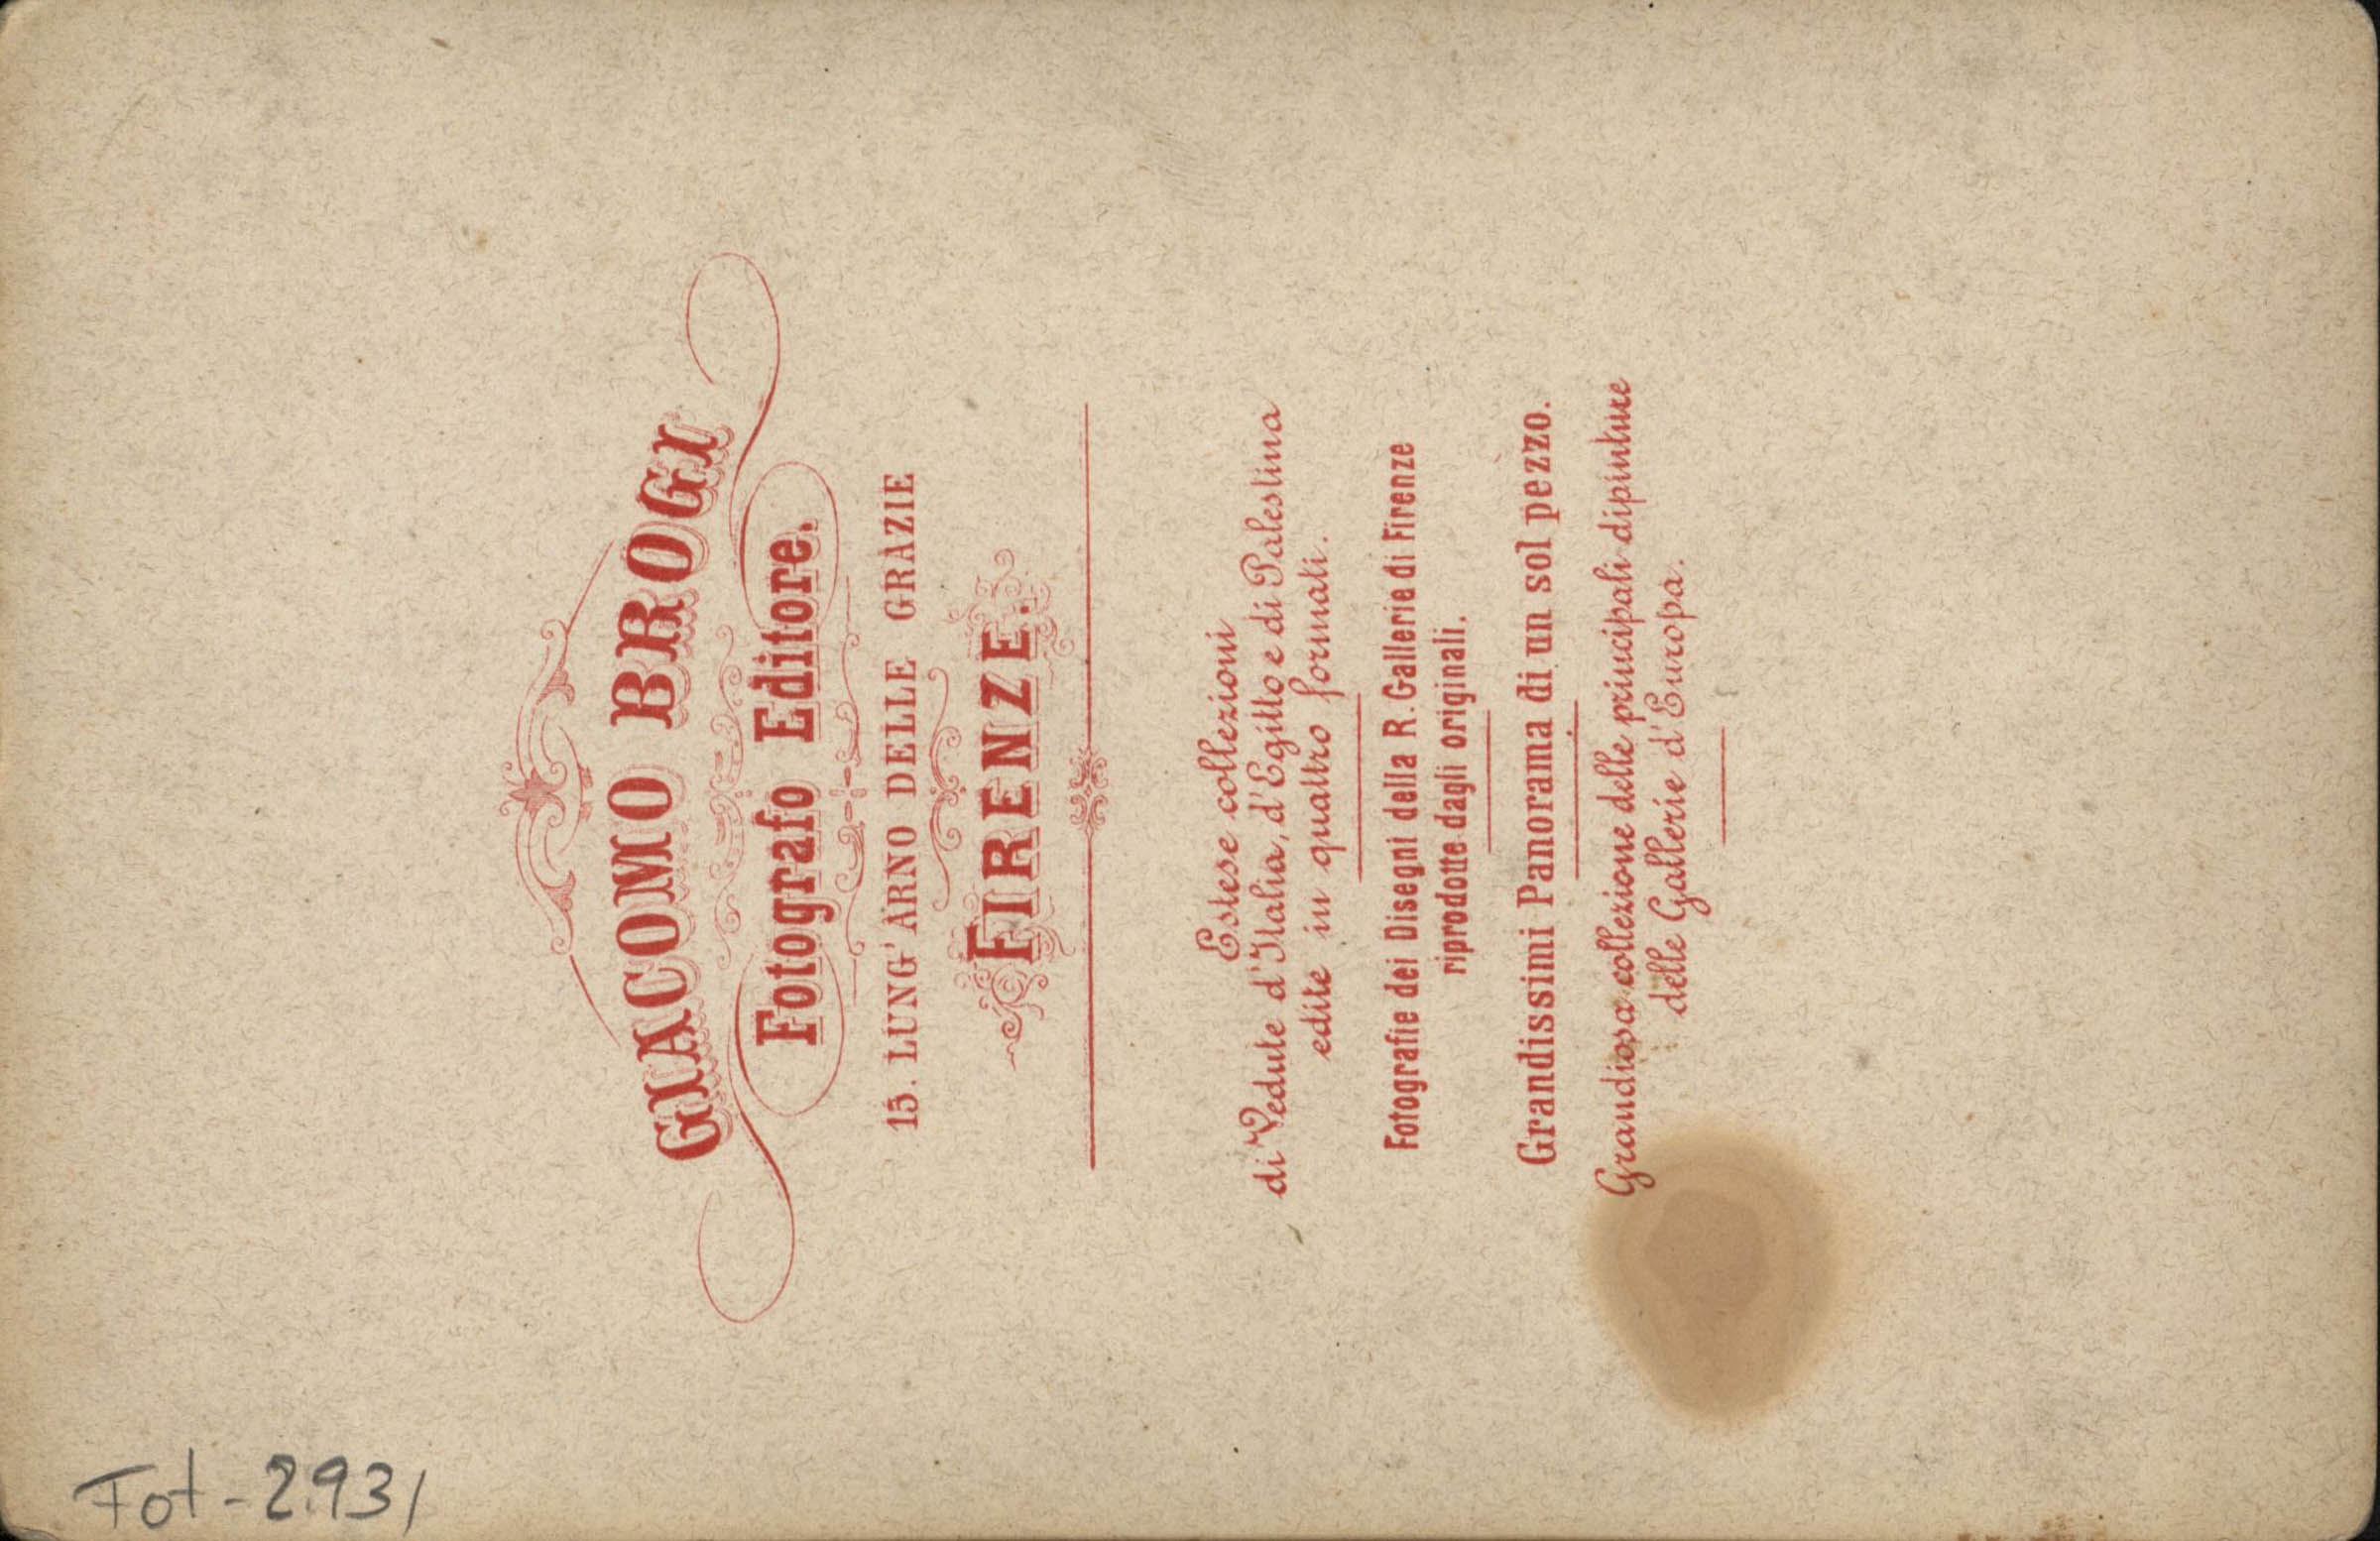 GIACOMO BROGI
Fotografo Editore.
15. LUNG' ARNO DELLE GRAZIE
FIRENZE.
Estese collezioni
di Vedute d'Italia, d'Egitto e di Palestina
edite in quattro formati.
Fotografie dei Disegni della R. Gallerie di Firenze
riprodotte dagli originali.
Grandissimi Panorama di un sol pezzo.
Grandiosa collezione delle principali dipinture
delle Gallerie d'Europa.
Fot-2.931